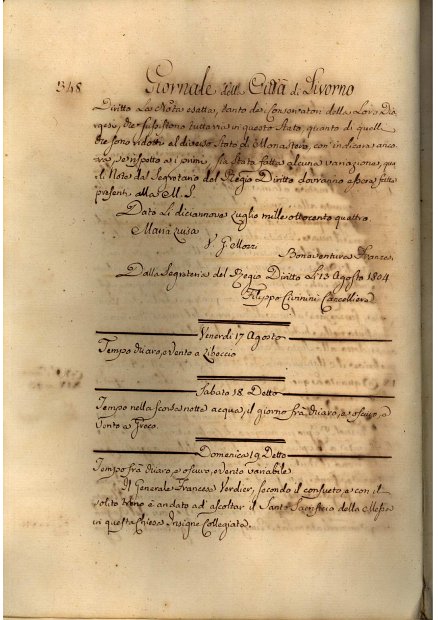 348 Giornale della Città di Livorno
Diritto la Nota esatta, tanto dei Conservatori della Loro Dio
cesi, che sussistono tuttavia in questo Stato, quanto di quelli
che sono ridotti al diverso Stato di Monastero, con indicare anco
ra, se rispetto ai primi, sia stata fatta alcuna variazione, qua
li Note dal Segretario del Regio Diritto dovranno essere fatte
presenti alla M. S.
Dato li diciannove Luglio mille ottocento quattro.
Maria Luisa
V. G. Mozzi
Bonaventura
Dalla Segreteria del Regio Diritto li 13 Agosto 1804
Filippo Civinini Cancelliere
Venerdi 17 Agosto
Tempo chiaro, e vento a Libeccio
Sabato 18 Detto
Tempo nella scorsa notte acqua, il giorno frà chiaro, e oscuro, e
Vento a Greco.
Domenica 19 Detto
Tempo frà chiaro, e oscuro, e vento variabile
Il Generale Francese Verdier, secondo il consueto, e con il
solito treno è andato ad ascoltar il Santo Sacrificio della Messa
in questa Chiesa Insigne Collegiata.